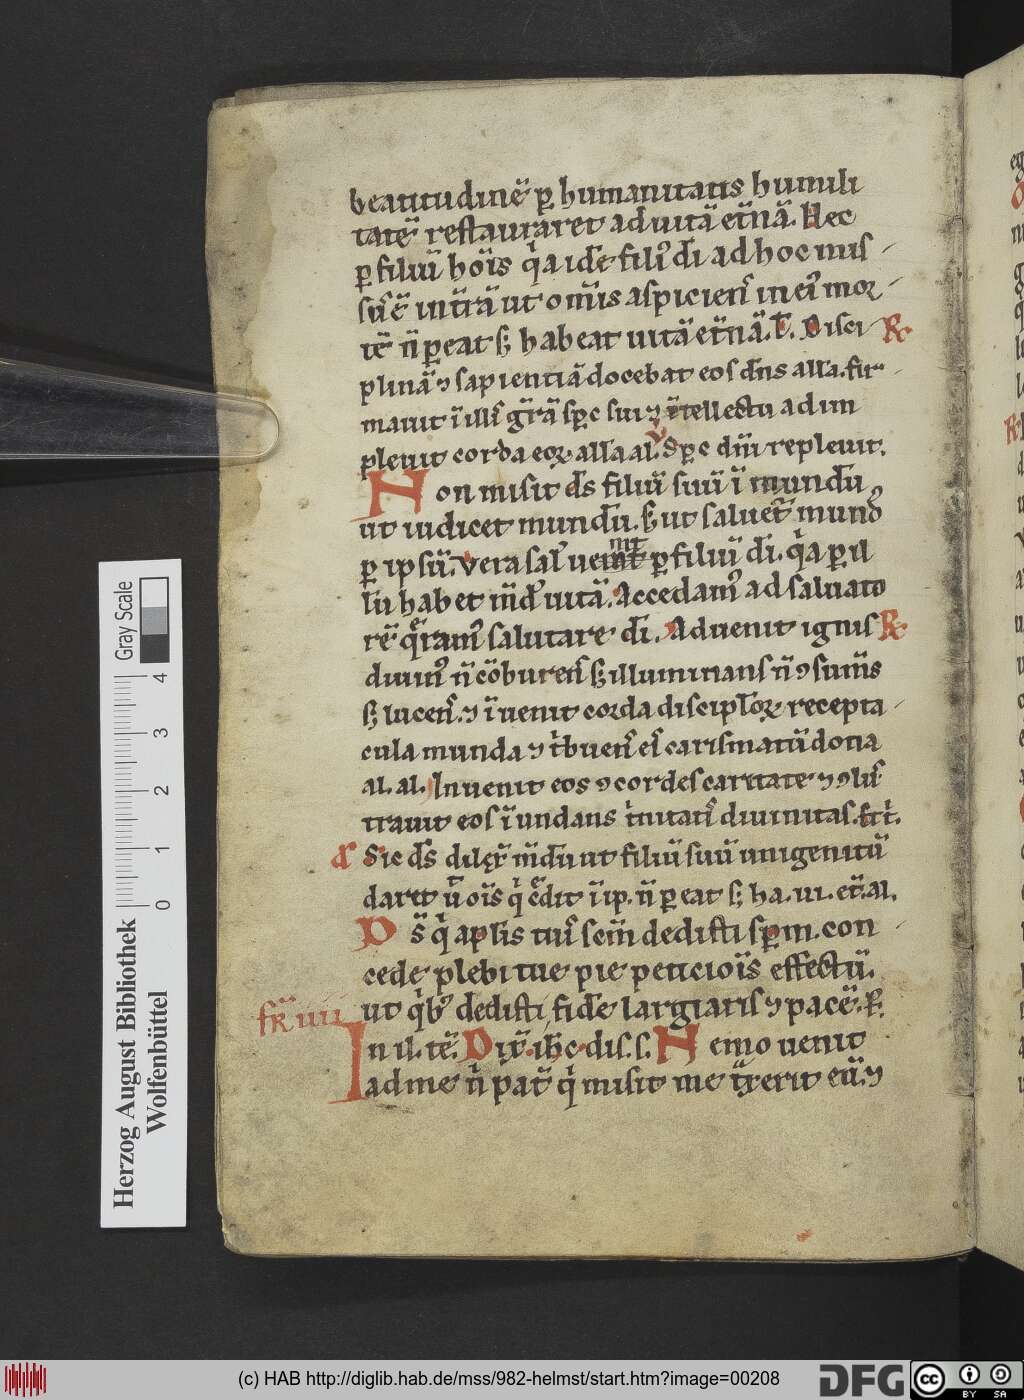 beatitudinē ꝑ humanitatis humili
tatē restauraret ad uitā et̄nā. Nec
ꝑ filiū hoīs q̇a idē filiꝰ dī ad hoc mis
sꝰ ē ut om̄s aspicienſ in eū̄ mor
tē n̄ ꝑeat sꝫ habeat uitā et̄nā. Disci ℟
plinā ⁊ sapientiā docebat eos dn̄s alla. fir
mauit ī illiſ gr̄ā sp̄c sui ⁊ ītellectu ad im
pleuit corda eoꝝ alla al. Sp̄c dn̄i repleuit.
Non misit ds̄ filiū suū ī mundū
ut iudicet mundū. sꝫ ut saluet̄ mundꝰ
ꝑ ipsū. Vera salꝰ uenit ꝑ filiū dī. q̇a ꝑ il
lū habet mūdꝰ uitā. Accedamꝰ ad saluato
rē q̄ramꝰ salutare dī. Aduenit ignis ℟
diuinꝰ n̄ cōburenſ sꝫ illuminans n̄ ꝯsum̄s
sꝫ lucenſ. ⁊ īuenit corda discipl̄oꝝ recepta
cula munda ⁊ t̄buenſ eiſ carismatū dona
al. al. Inuenit eos ꝯcordes caritate ⁊ ꝯluſ
trauit eos īundans t̄nitatiſ diuinitas.
Sic ds̄ dilex̄ mūdū ut filiū suū unigenitū
daret ū oīs q̇ c̄dit ī ip. n̄ ꝑeat sꝫ ha. ui. et̄. al.
Ds̄ q̇ aplīs tuiſ scm̄ dedisti sp̄m. con
cede plebi tue pie peticiōis effectū.
ut q̇bꝰ dedisti fidē largiaris ⁊ pacē. ꝑ.
fr̄ iiii
In il. tē. Dix̄ ih̄c dis. s. Nemo uenit
ad me n̄ pat̄ q̇ misit me trͣxerit eū. ⁊
Herzog August Bibliothek
Wolfenbüttel
0 1 2 3 4
Gray Scale
(c) HAB http://diglib.hab.de/mss/982-helmst/start.htm?image=00208
DFG
cc BY SA